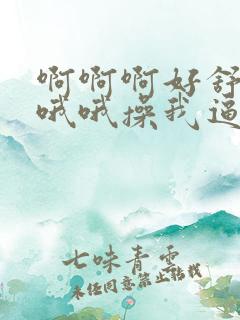 啊啊啊好舒
哦哦操我逼
七味青雲
未经同意禁止转载